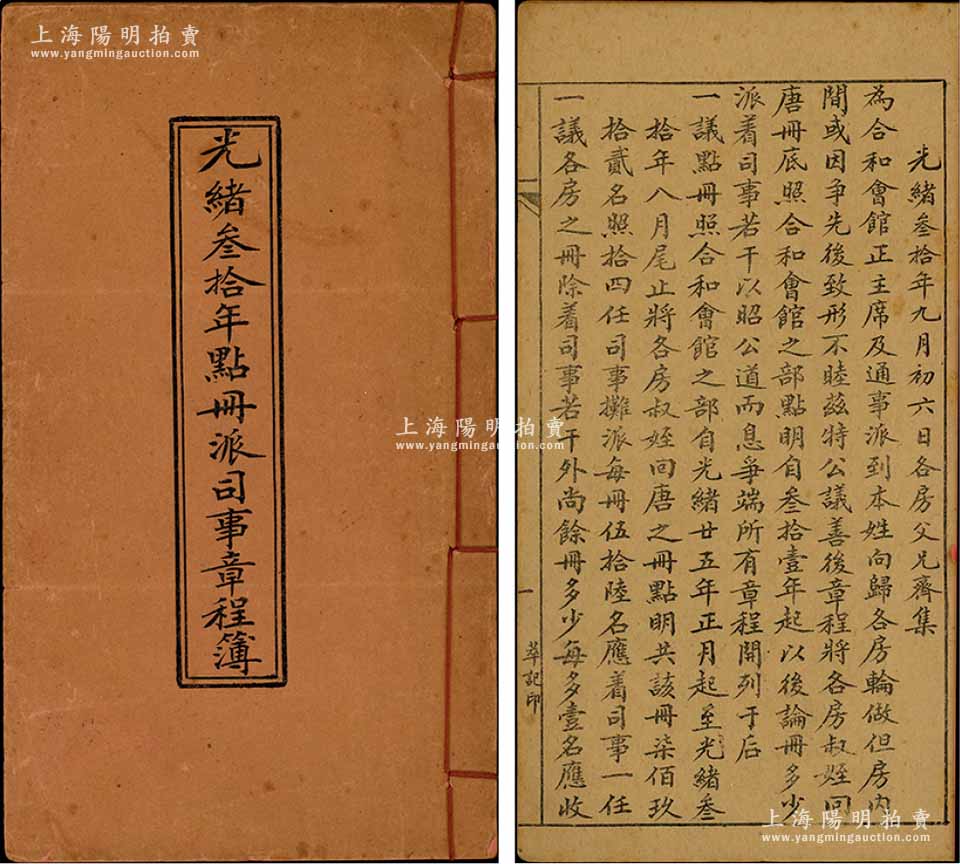 上海陽明拍賣
www.yangmingauction.com
光緒叁拾年點冊派司事章程簿
上海陽明拍賣
www.yangmingauction.com
光緒叁拾年九月初六日各房父兄齊集
為合和會館正主席及通事派到本姓向歸各房輪做但房內
間或因爭先後致形不睦茲特公議善後章程將各房叔姪回
唐冊底照合和會館之部點明自叁拾壹年起以後論冊多少
派着司事若干以昭公道而息爭端所有章程開列于后
一議點冊照合和會館之部自光緒廿五年正月起至光緒叁
拾年八月尾止將各房叔姪回唐之冊點明共該冊柒佰玖
拾貳名照拾四任司事攤派每冊伍拾陸名應着司事一任
一議各房之冊除着司事若干外尚餘冊多少每多壹名應收
一
萃記印
上海陽明拍賣
www.yangmingauction.com